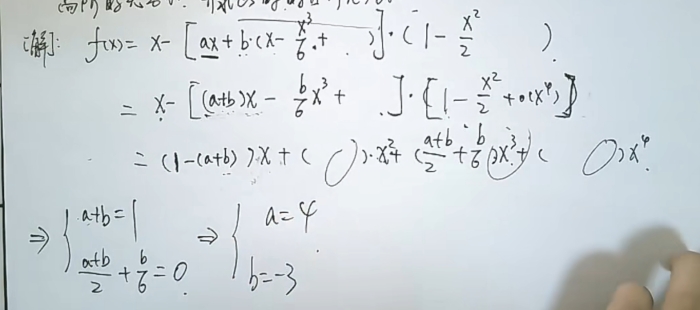 解: f(x) = x - [ax + b·(x - x³/6 + )]·(1 - x²/2 )
= x - [(a+b)x - b/6 x³ + ]·[1 - x²/2 + o(x⁴)]
= (1-(a+b))·x + ( )·x² + (a+b/2 + b/6)x³ + ( )x⁴.
⇒ { a+b=1 a+b/2 + b/6 = 0 ⇒ { a=4 b=-3